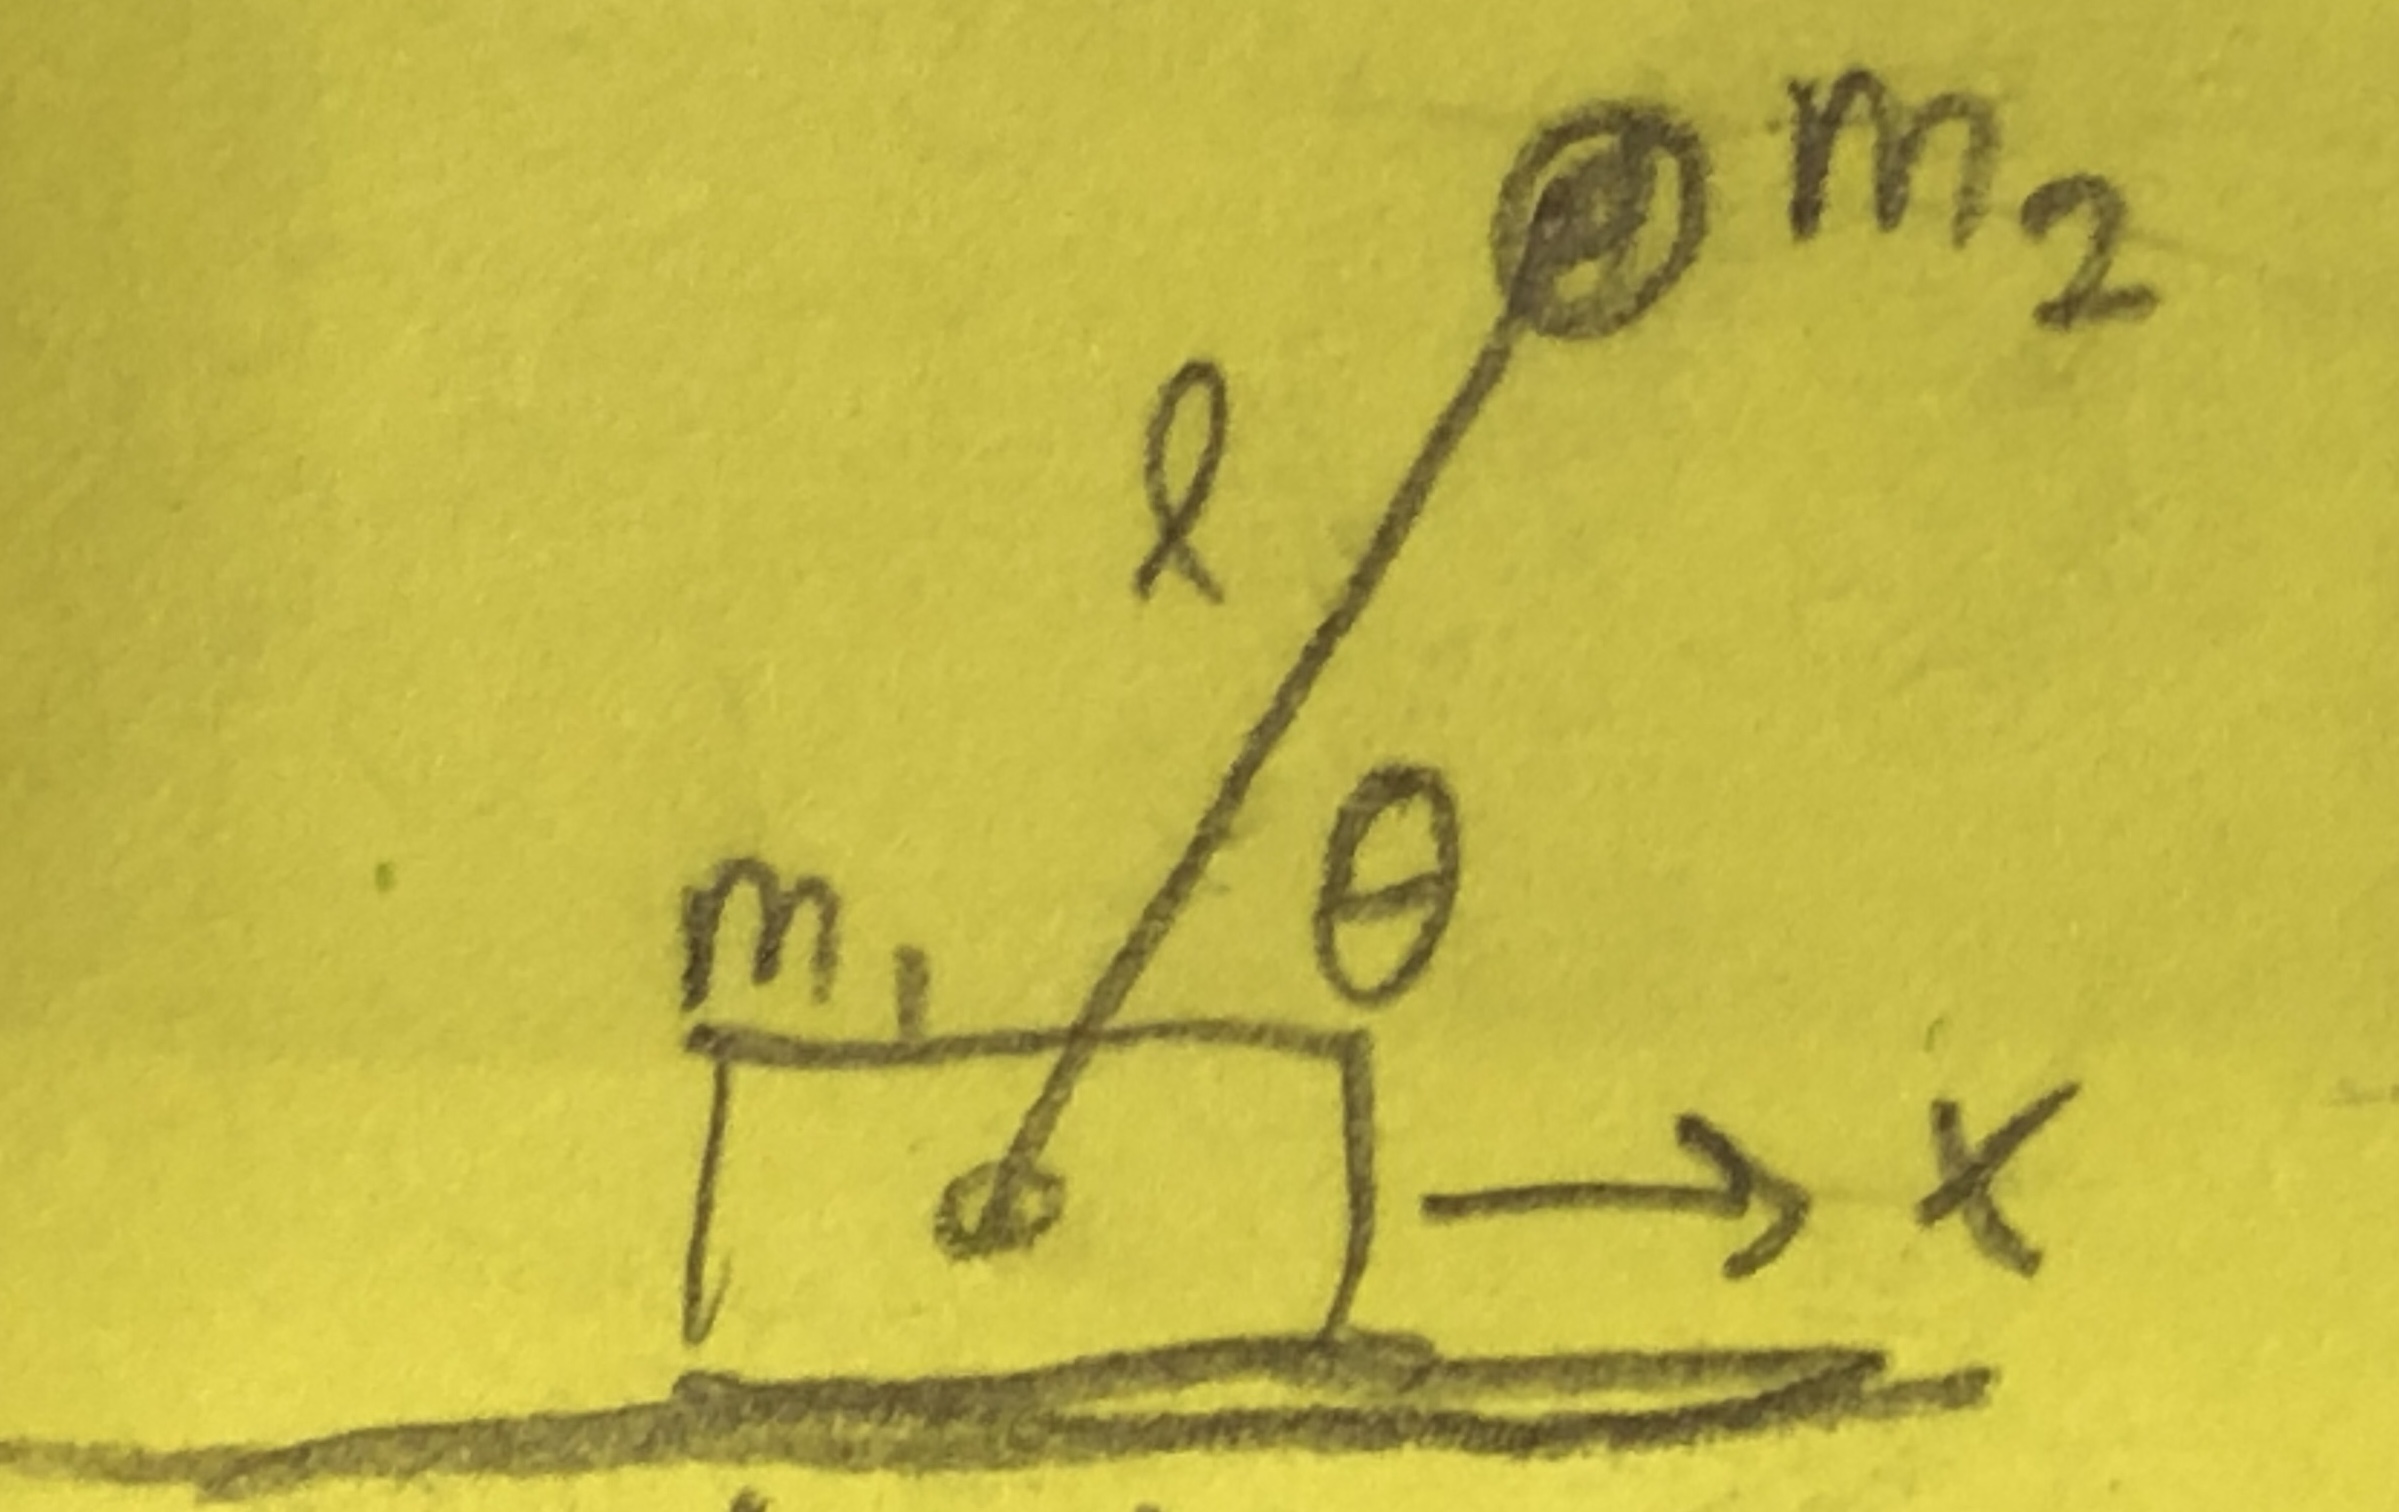 m₂
ℓ
θ
m₁
x